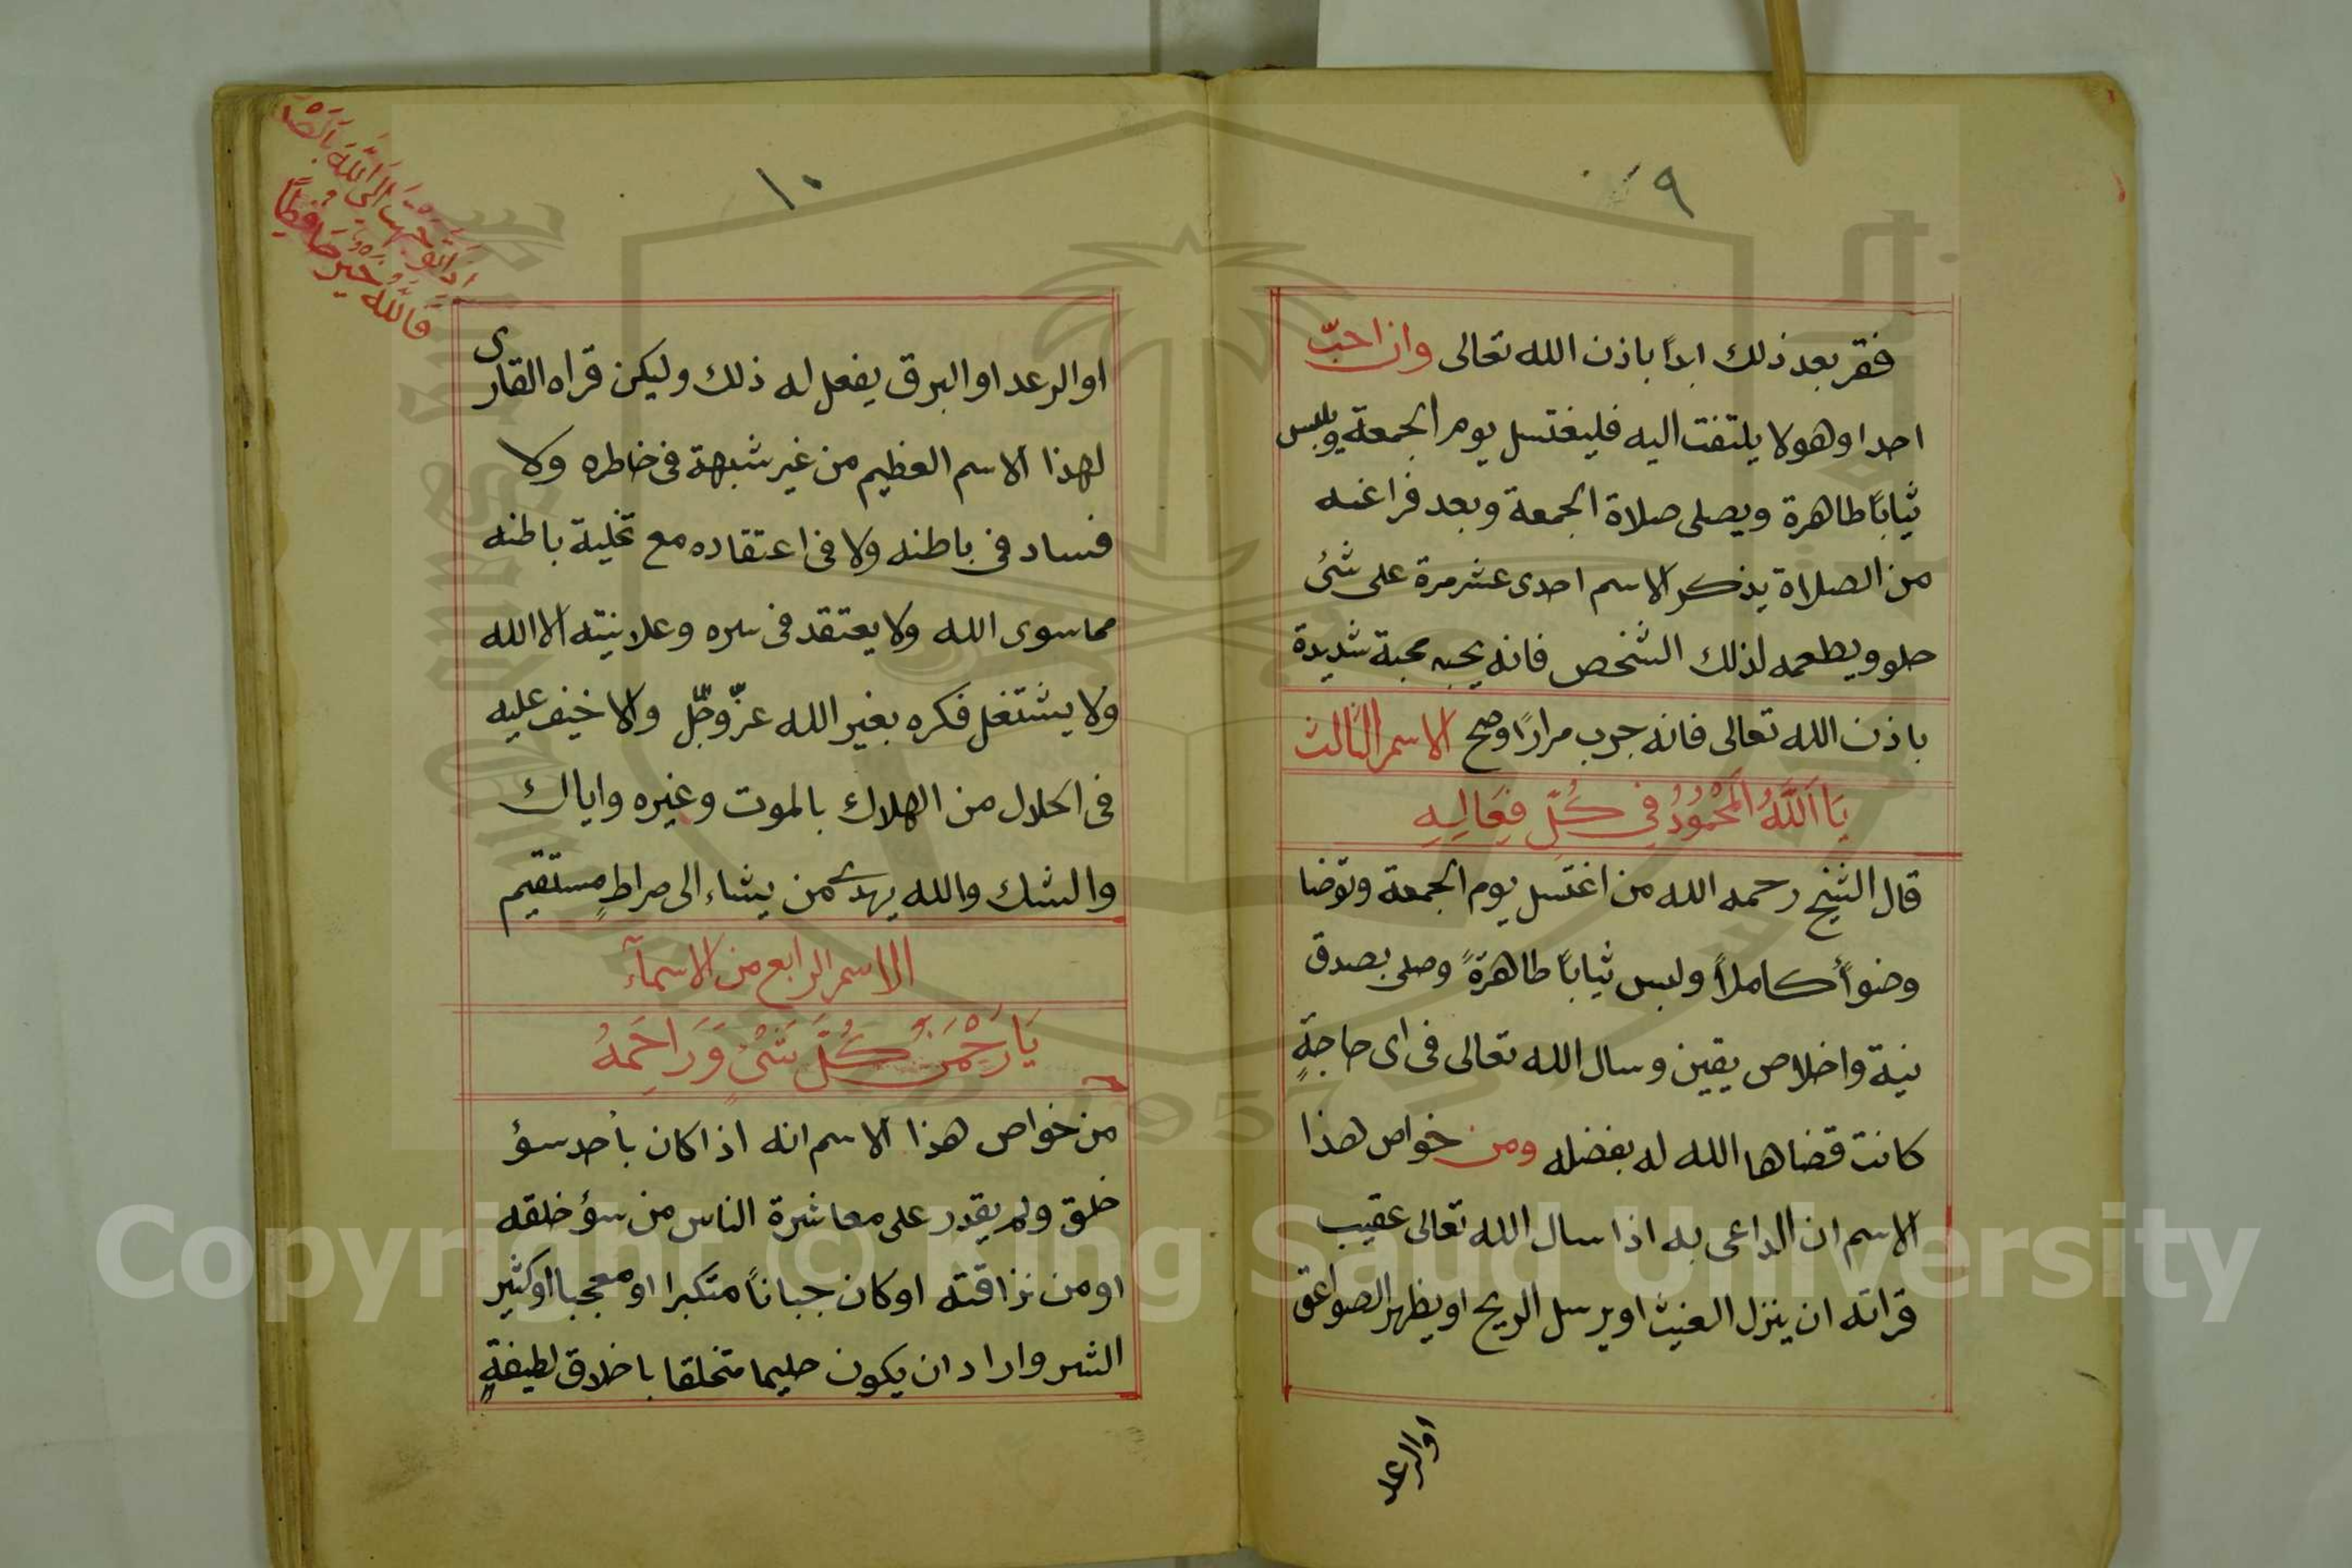 ٩
فقر بعد ذلك ابدًا باذن الله تعالى وان احبّ
احدا وهو لا يلتفت اليه فليغتسل يوم الجمعة ويلبس
ثيابًا طاهرة ويصلى صلاة الجمعة وبعد فراغه
من الصلاة يذكر الاسم احدى عشر مرة على شئ
حلو ويطعمه لذلك الشخص فانه يحبه محبة شديدة
باذن الله تعالى فانه جرب مرارًا وصح الاسم الثالث
يَا اَللَّهُ الْمَحْمُودُ فِي كُلِّ فِعَالِهِ
قال الشيخ رحمه الله من اغتسل يوم الجمعة وتوضا
وضوأً كاملاً ولبس ثيابًا طاهرةً وصلى بصدق
نية واخلاص يقين وسال الله تعالى فى اى حاجةٍ
كانت قضاها الله له بفضله ومن خواص هذا
الاسم ان الداعى به اذا سال الله تعالى عقيب
قراته ان ينزل الغيث او يرسل الريح او يظهر الصواعق
او الرعد
١٠
او الرعد او البرق يفعل له ذلك وليكن قراه القارى
لهذا الاسم العظيم من غير شبهة فى خاطره ولا
فساد فى باطنه ولا فى اعتقاده مع تخلية باطنه
مما سوى الله ولا يعتقد فى سره وعلانيته الا الله
ولا يشتغل فكره بغير الله عزّ وجّل والا خيف عليه
فى الحلال من الهلاك بالموت وغيره واياك
والشك والله يهدى من يشاء الى صراطٍ مستقيم
الاسم الرابع من الاسمآء
يَا رَحْمَنَ كُلِّ شَىْءٍ وَرَاحِمَهُ
من خواص هذا الاسم انه اذا كان بأحد سؤ
خلق ولم يقدر على معاشرة الناس من سؤ خلقه
او من نزاقته او كان جبانًا متكبرا او معجبا او كثير
الشر واراد ان يكون حليما متخلقا باخلاق لطيفةٍ
الى الله
فَاللَّهُ خَيْرٌ حَافِظًا
Copyright © King Saud University
1957